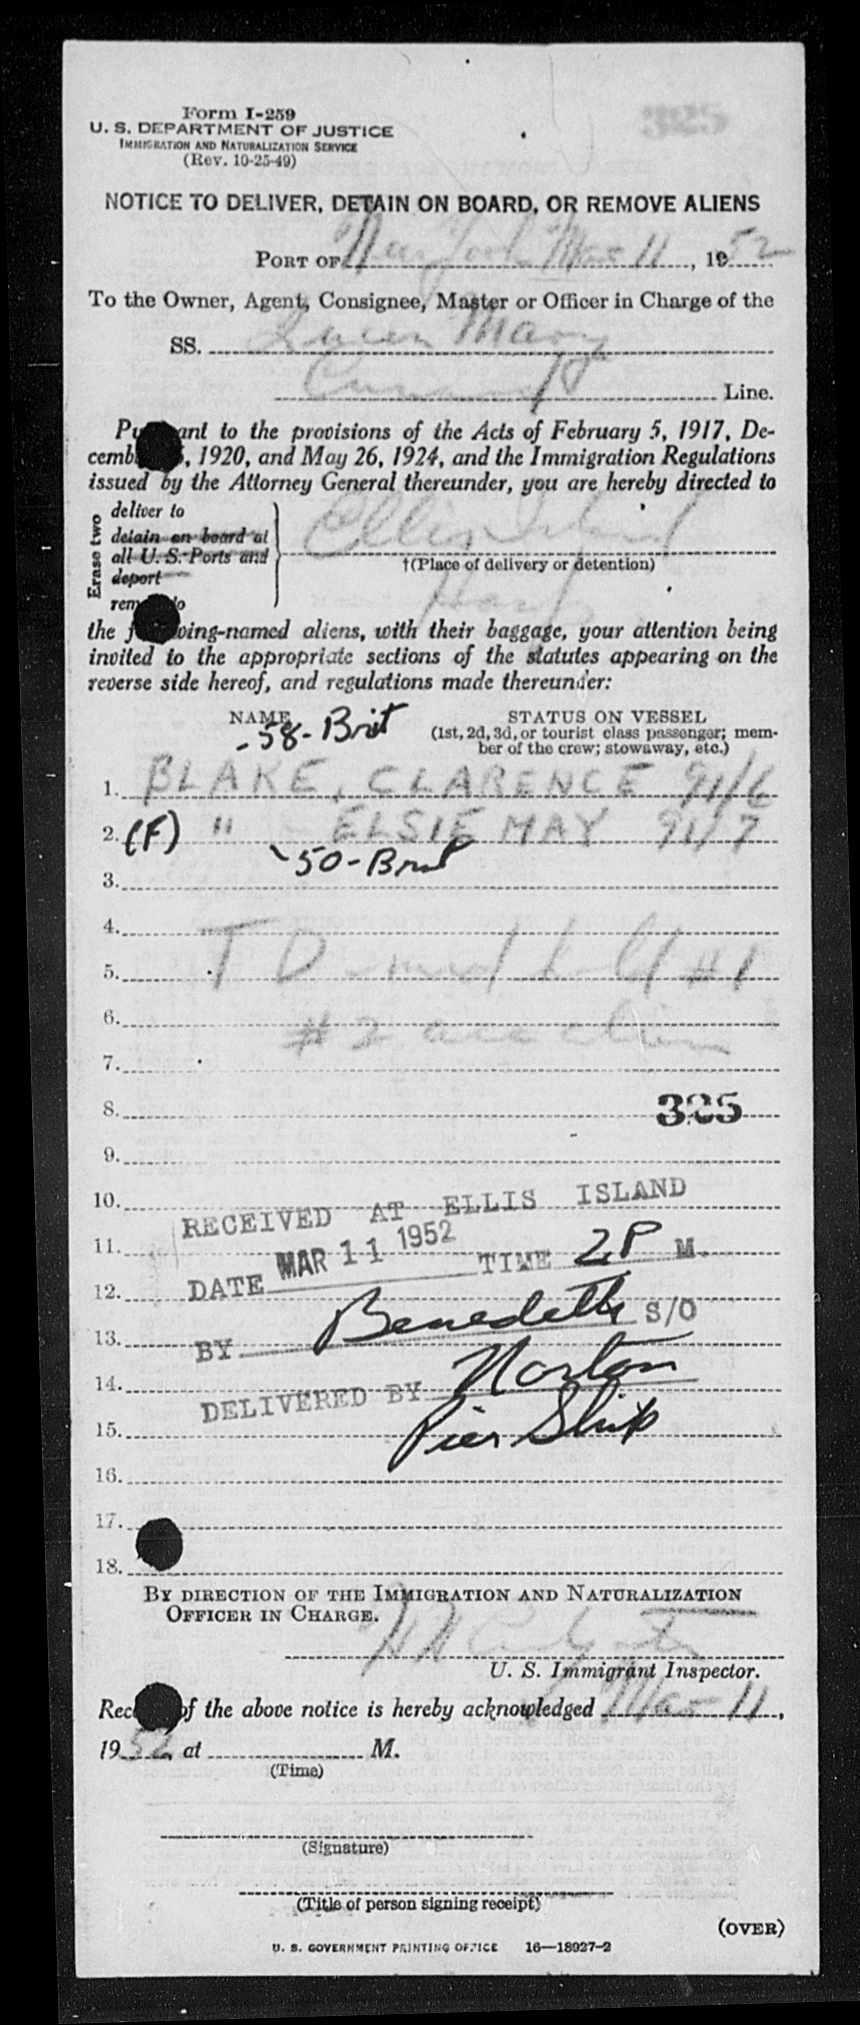 325
Form I-259
U. S. DEPARTMENT OF JUSTICE
IMMIGRATION AND NATURALIZATION SERVICE
(Rev. 10-25-49)
NOTICE TO DELIVER, DETAIN ON BOARD, OR REMOVE ALIENS
PORT OF New York Mar 11, 1952
To the Owner, Agent, Consignee, Master or Officer in Charge of the
SS. Queen Mary
Cunard Line.
ant to the provisions of the Acts of February 5, 1917, De-
cemb , 1920, and May 26, 1924, and the Immigration Regulations
issued by the Attorney General thereunder, you are hereby directed to
Erase two
deliver to
detain on board at
all U. S. Ports and
deport
rem to
Ellis Island
†(Place of delivery or detention)
the f wing-named aliens, with their baggage, your attention being
invited to the appropriate sections of the statutes appearing on the
reverse side hereof, and regulations made thereunder:
NAME STATUS ON VESSEL
-58- Brit (1st, 2d, 3d, or tourist class passenger; mem-
ber of the crew; stowaway, etc.)
1. BLAKE, CLARENCE 91/6
2. (F) " - ELSIE MAY 91/7
3. 50-Brit
4.
5. T D #1
6. #2
7.
8. 325
9.
10. RECEIVED AT ELLIS ISLAND
11. DATE MAR 11 1952 TIME 2P M.
12.
13. BY Benedetti S/O
14. DELIVERED BY Norton
15. Pier Ship
16.
17.
18.
BY DIRECTION OF THE IMMIGRATION AND NATURALIZATION
OFFICER IN CHARGE.
U. S. Immigrant Inspector.
Rec of the above notice is hereby acknowledged Mar 11,
1952, at M.
(Time)
(Signature)
(Title of person signing receipt)
(OVER)
U. S. GOVERNMENT PRINTING OFFICE 16—18927-2